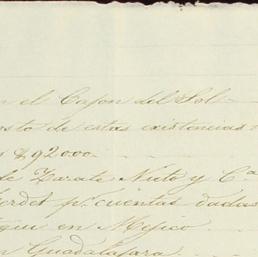 n el Cajon del Sol
osto de estas existencias
s $92.000.
de Zarate Nieto y Cª
erdet pr. cuentas dadas
qui en Mejico
n Guadalajara